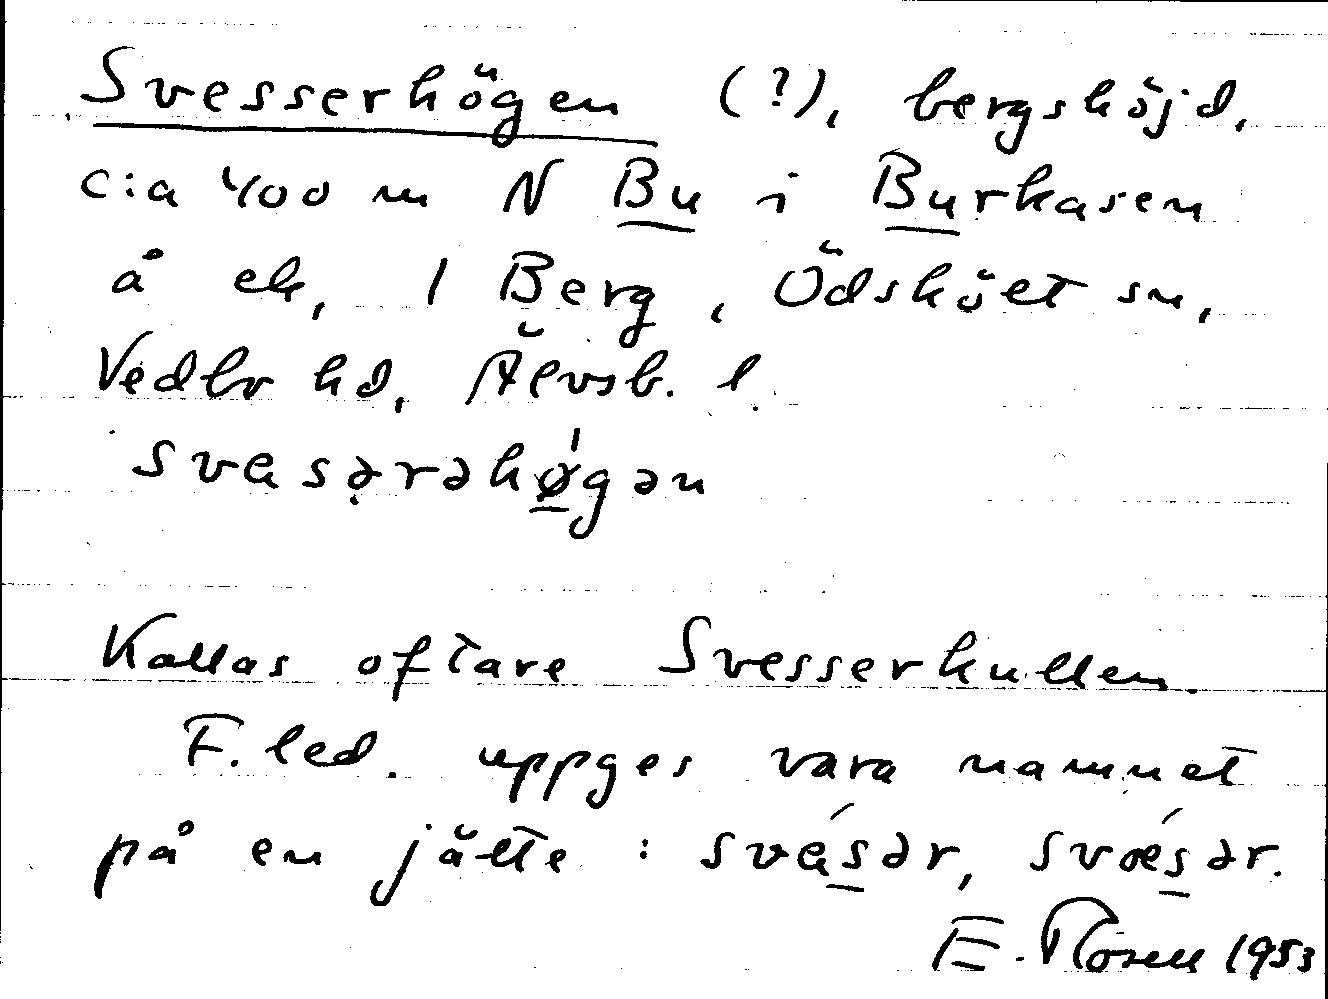 Svesserhögen (?), bergshöjd,
c:a 400 m N Bu i Burkasen
å ek, 1 Berg, Ödsköet sn,
Vedbo hd, Älvsb. l.
svɛsərəhǿ̱gən
Kallas oftare Svesserkullen.
F. led. uppges vara namnet
på en jätte: své̱sər, svǽs̱ər.
E. Rosell 1953